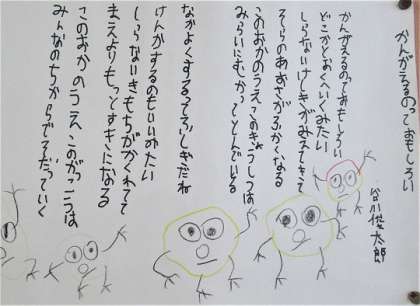 かんがえるっておもしろい
谷川俊太郎
かんがえるのっておもしろい
どこかとおくへいくみたい
しらないけしきがみえてきて
そらのあおさがふかくなる
このおかのうえこのきょうしつは
みらいにむかってとんでいる
なかよくするってふしぎだね
けんかするのもいいみたい
しらないきもちがかくれてて
まえよりもっとすきになる
このおかのうえこのがっこうは
みんなのちからでそだっていく